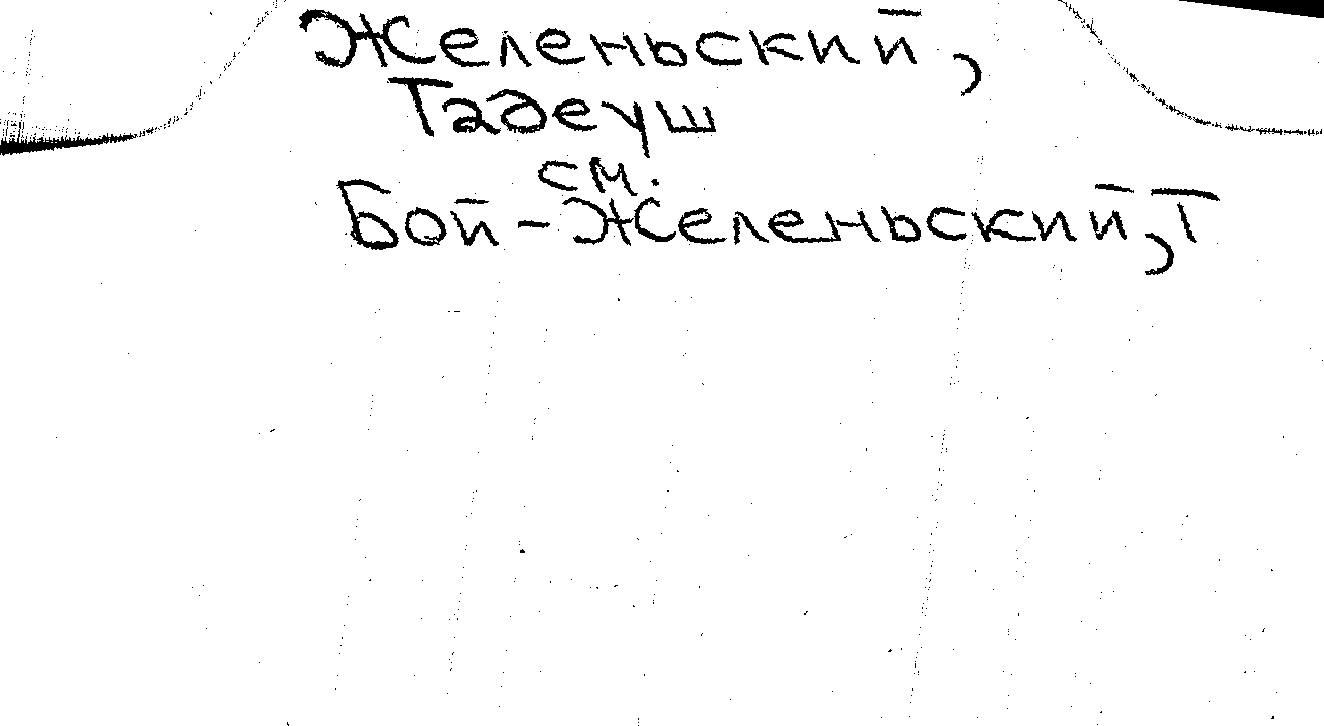 Желеньский,
Тадеуш
см.
Бой-Желеньский, Т